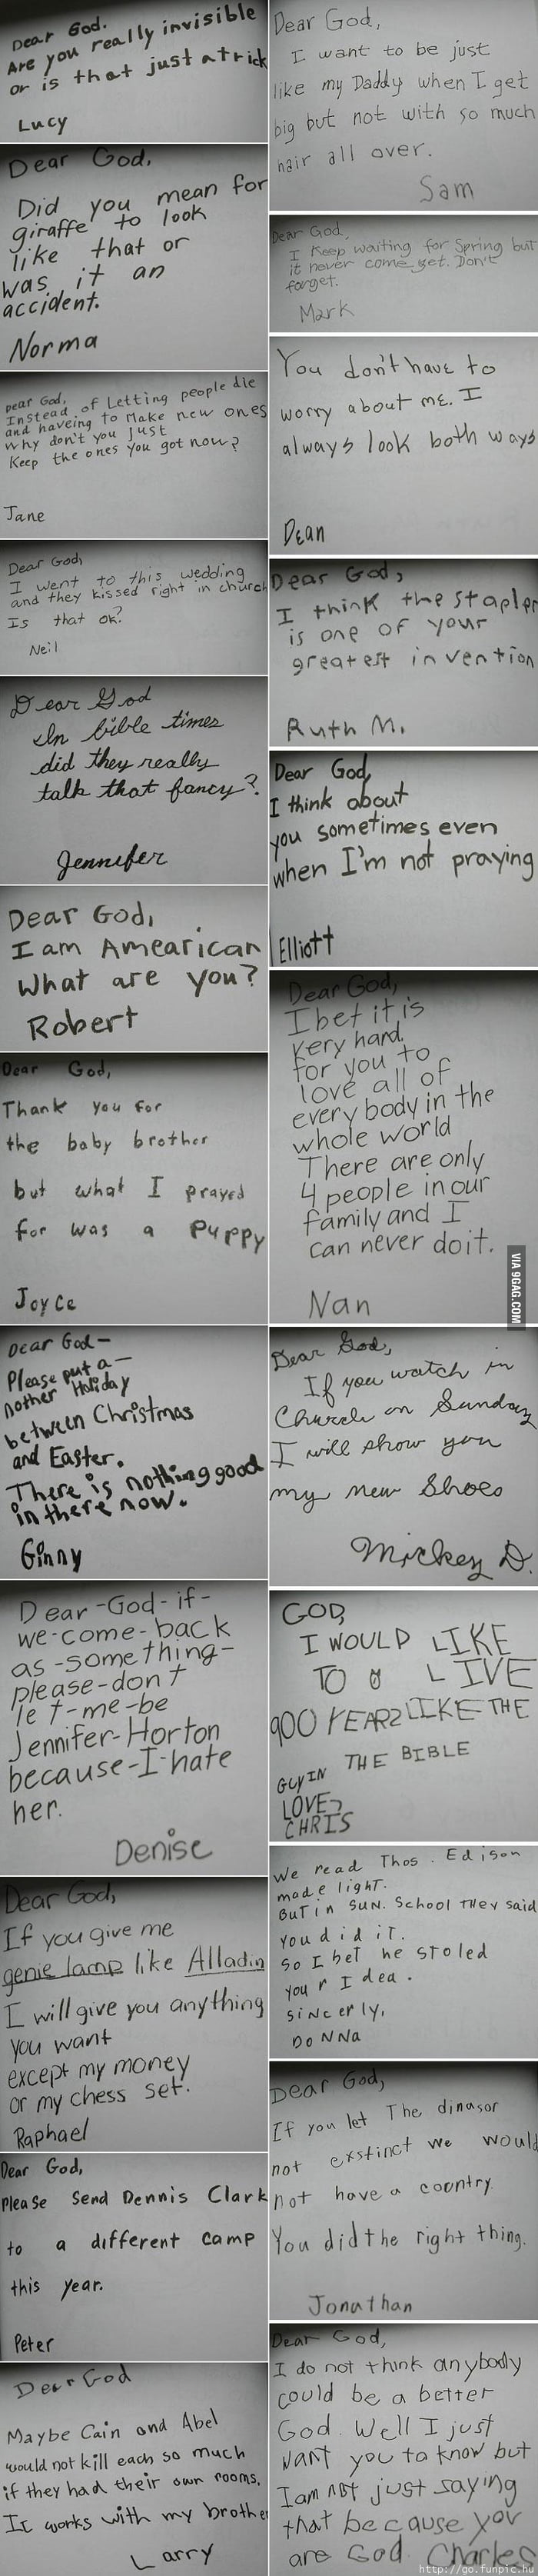 Dear God.
Are you really invisible
or is that just a trick
Lucy
Dear God,
Did you mean for
giraffe to look
like that or
was it an
accident.
Norma
Dear God,
Instead of Letting people die
and haveing to Make new ones
why don't you Just
Keep the ones you got now?
Jane
Dear God,
I went to this wedding
and they kissed right in church
Is that ok?
Neil
Dear God
In bible times
did they really
talk that fancy?
Jennifer
Dear God,
I am Amearican
What are you?
Robert
Dear God,
Thank you for
the baby brother
but what I prayed
for was a puppy
Joyce
Dear God-
Please put a-
nother Holiday
between Christmas
and Easter.
There is nothing good
in there now.
Ginny
Dear-God-if-
we-come-back
as-something-
please-don't
let-me-be
Jennifer-Horton
because-I-hate
her.
Denise
Dear God,
If you give me
genie lamp like Alladin
I will give you anything
you want
except my money
or my chess set.
Raphael
Dear God,
Please Send Dennis Clark
to a different camp
this year.
Peter
Dear God
Maybe Cain and Abel
would not kill each so much
if they had their own rooms.
It works with my brothe
Larry
Dear God,
I want to be just
like my Daddy when I get
big but not with so much
hair all over.
Sam
Dear God.
I Keep waiting for Spring but
it never come yet. Don't
forget.
Mark
You don't have to
worry about me. I
always look both ways
Dean
Dear God,
I think the stapler
is one of your
greatest invention
Ruth M.
Dear God,
I think about
you sometimes even
when I'm not praying
Elliott
Dear God,
I bet it is
very hard
for you to
love all of
every body in the
whole world
There are only
4 people in our
family and I
can never do it.
Nan
VIA 9GAG.COM
Dear God,
If you watch in
Church on Sunday
I will show you
my new Shoes
Mickey D.
GOD,
I WOULD LIKE
TO LIVE
900 YEARS LIKE THE
GUY IN THE BIBLE
LOVE,
CHRIS
We read Thos. Edison
made light.
But in Sun. School They said
you did it.
So I bet he stoled
your Idea.
Sincerly,
DoNNa
Dear God,
If you let The dinasor
not exstinct we would
not have a country.
You did the right thing.
Jonathan
Dear God,
I do not think anybody
could be a better
God. Well I just
want you to know but
I am not just saying
that because you
are God. Charles
http://go.funpic.hu